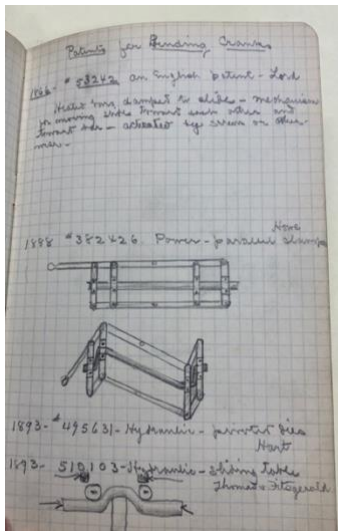 Patents for Bending Cranks
1866- # 53242 an English patent - Lord
Heated iron, clamped to slides - mechanism
for moving slides toward each other and
toward - actuated by screws or other-
1888 #382426 Power - parallel clamps
Howe
1893- #495631- Hydraulic - pivoted dies
Hart
1893- 510103- Hydraulic - sliding table
Thomas & Fitzgerald